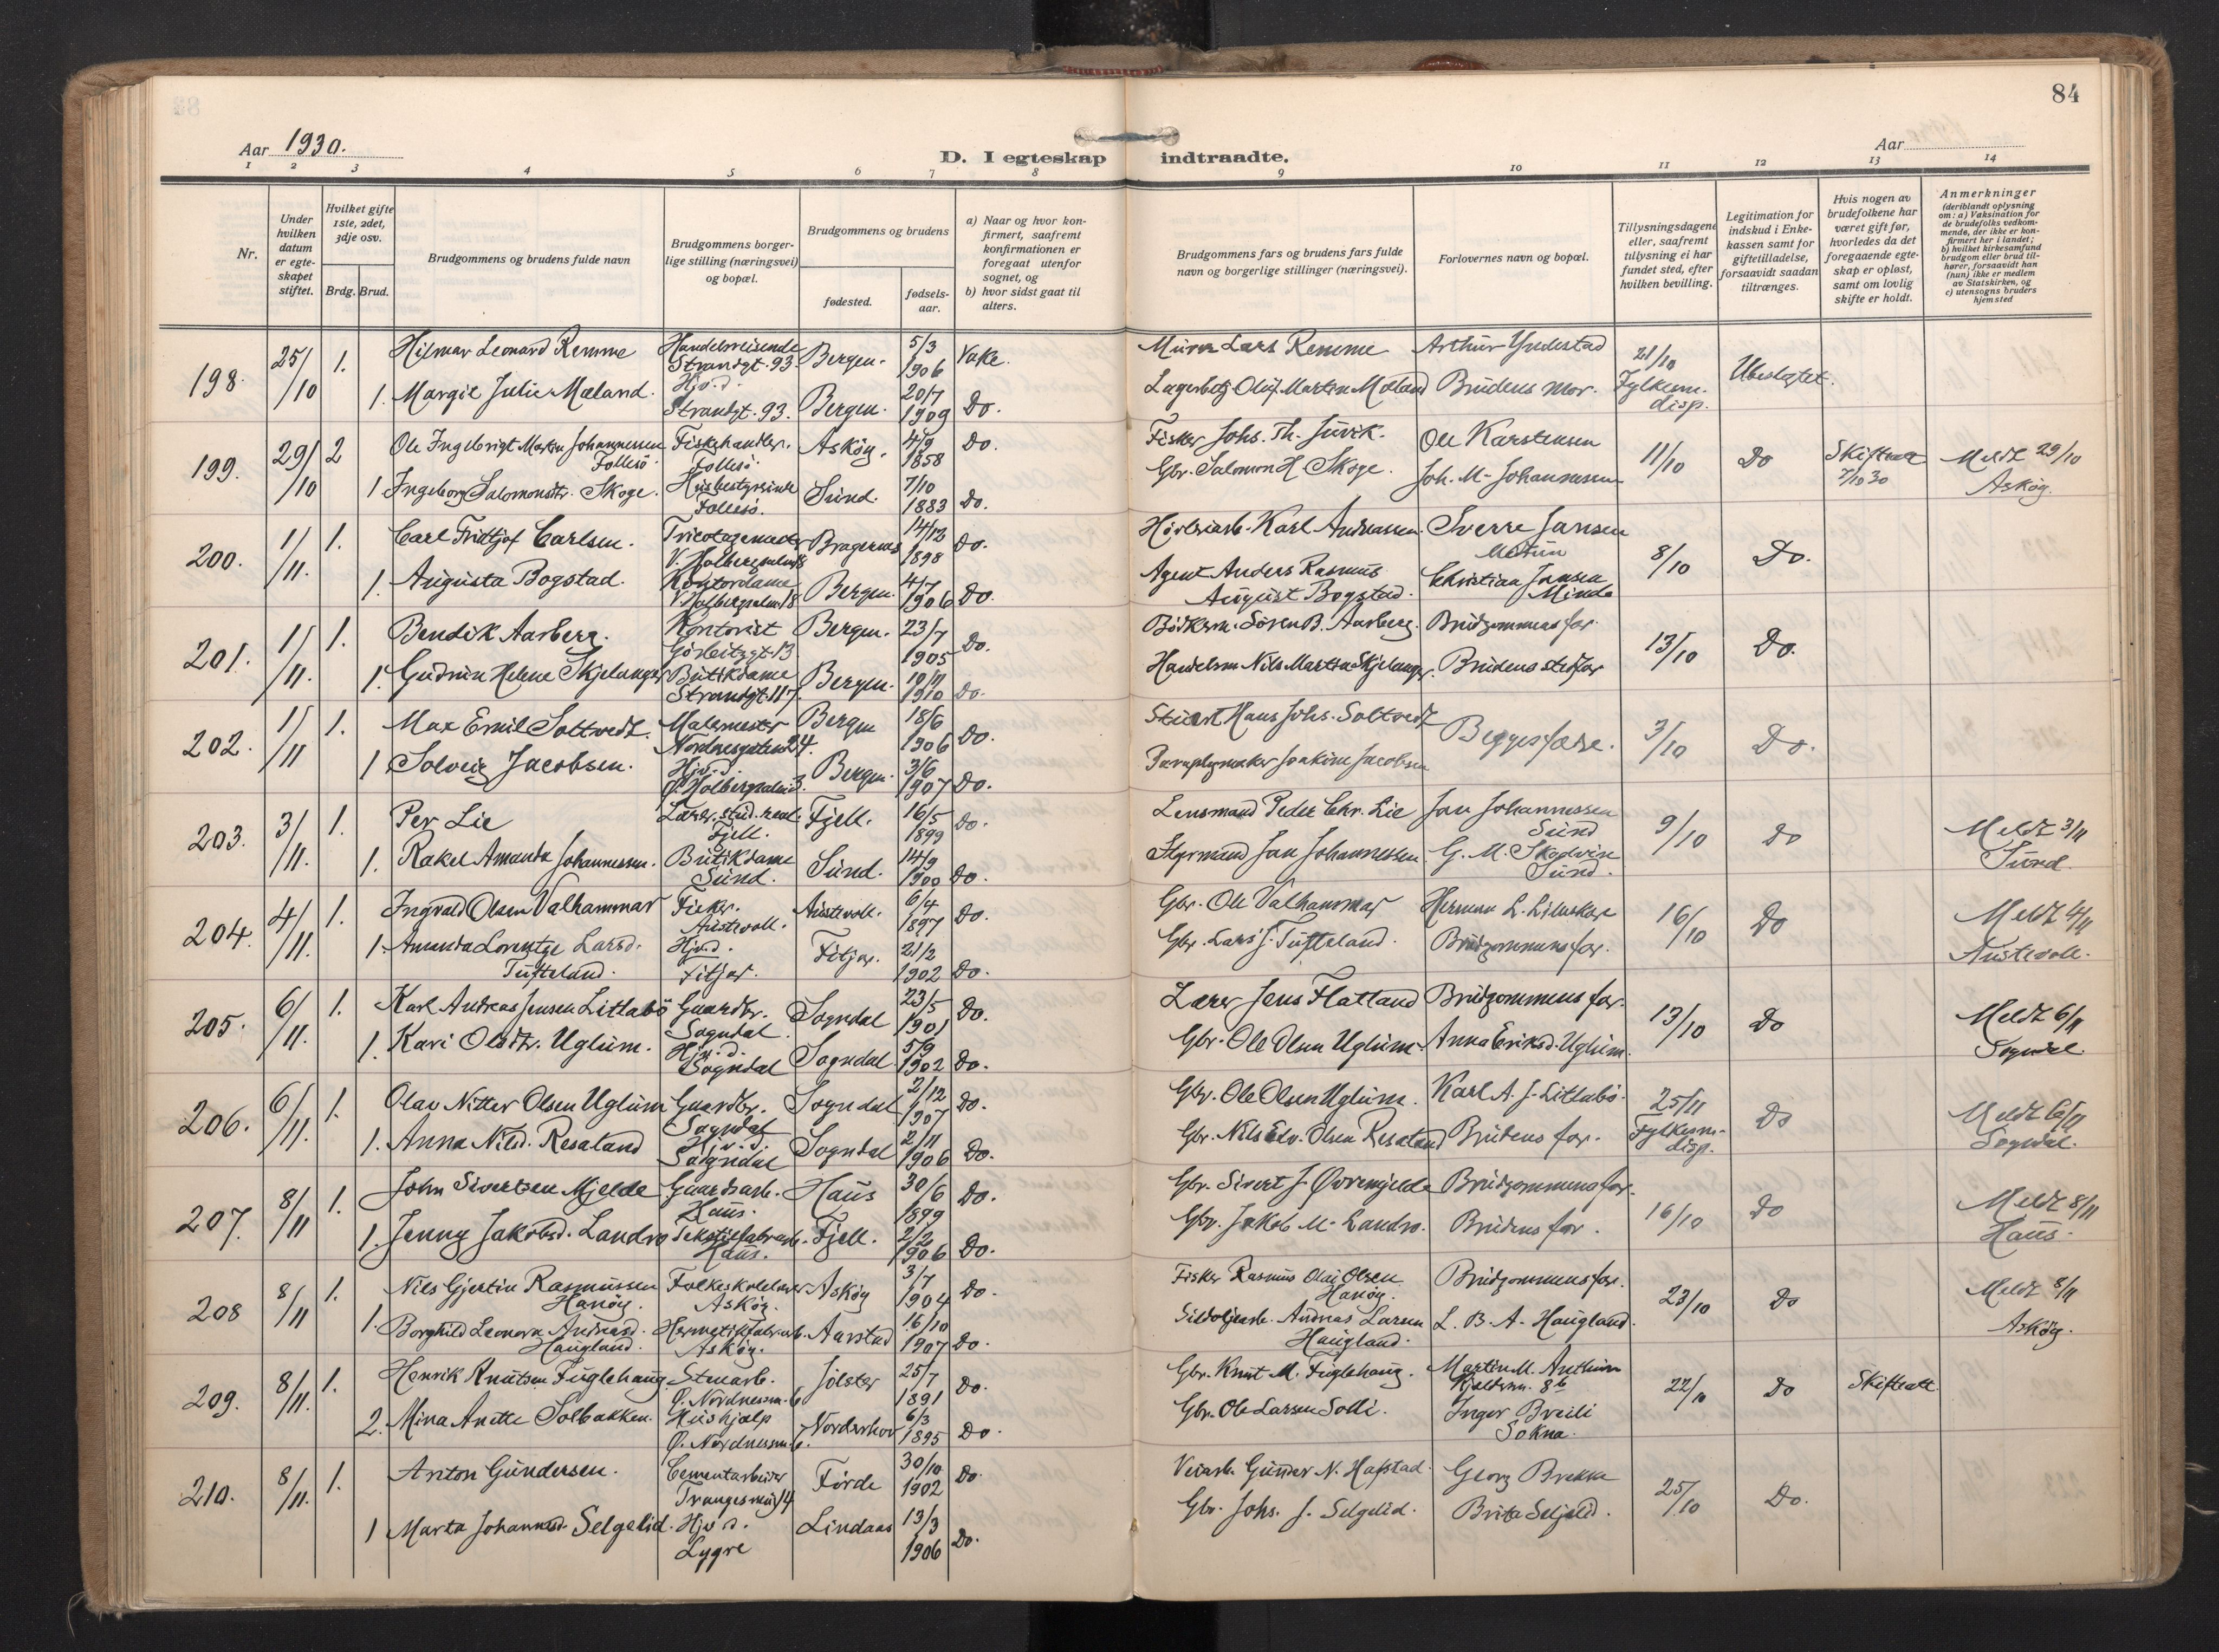 84
Aar 1930.
Aar
D. I egteskap indtraadte.
1 2 3 4 5 6 7 8 9 10 11 12 13 14
Nr.
Under hvilken datum er egte- skapet stiftet.
Hvilket gifte 1ste, 2det, 3dje osv.
Brdg. Brud.
Brudgommens og brudens fulde navn
Brudgommens borger- lige stilling (næringsvei) og bopæl.
Brudgommens og brudens
fødested.
fødsels- aar.
a) Naar og hvor kon- firmert, saafremt konfirmationen er foregaat utenfor sognet, og
b) hvor sidst gaat til alters.
Brudgommens fars og brudens fars fulde navn og borgerlige stillinger (næringsvei).
Forlovernes navn og bopæl.
Tillysningsdagene eller, saafremt tillysning ei har fundet sted, efter hvilken bevilling.
Legitimation for indskud i Enke- kassen samt for giftetilladelse, forsaavidt saadan tiltrænges.
Hvis nogen av brudefolkene har været gift før, hvorledes da det foregaaende egte- skap er opløst, samt om lovlig skifte er holdt.
Anmerkninger (deriblandt oplysning om: a) Vaksination for de brudefolks vedkom- mende, der ikke er kon- firmert her i landet; b) hvilket kirkesamfund brudgom eller brud til- hører, forsaavidt han (hun) ikke er medlem av Statskirken, og c) utensogns bruders hjemsted
198. 25/10 1. Hilmar Leonard Remme Handelsreisende Strandgt. 93 Bergen. 5/3 1906 Vake. Murer Lars Remme Arthur Yndestad 21/10 Fylkesm. disp. Ubeslegtet.
1. Margit Julie Mæland. Hjv.d. Strandgt. 93. Bergen. 20/7 1909 Do. Lagerbetj. Oluf Martin Mæland Brudens mor.
199. 29/10 2 Ole Ingebrigt Martin Johannessen Follesö. Fiskehandler. Follesö. Asköy. 4/9 1858 Do. Fisker Johs. Th. Juvik. Ole Karstensen 11/10 Do Skifteatt 7/10 30 Meldt 29/10 Asköy.
1 Ingeborg Salomonsdtr. Skoge. Husbestyrerinde Follesö. Sund. 7/10 1883 Do. Gbr. Salomon H. Skoge. Joh. M. Johannessen
200. 1/11. 1. Carl Fridtjof Carlsen. V. Holbergsalm. 18 Bragernes 14/12 1898 Do. Høvleriarb. Karl Andreassen Sverre Jansen 8/10 Do.
1. Augusta Bogstad. Kontordame V. Holbergsalm. 18 Bergen. 4/7 1906 Do. Agent Anders Rasmus August Bogstad. Christian Jansen Minde
201. 1/11. 1. Bendik Aarberg. Kontorist Görbitzgt. 13 Bergen. 23/7 1905 Do. Bödkerm. Sören B. Aarberg. Brudgommens far. 13/10 Do.
1. Gudrun Helene Skjelanger Butikdame Strandgt. 117. Bergen. 10/11 1910 Do. Handelsm. Nils Martin Skjelanger. Brudens stedfar
202. 1/11 1. Max Emil Soltvedt. Malermester Nordnesgaten 24. Bergen 18/6 1906 Do. Stuert Hans Johs. Soltvedt Begges fædre. 3/10 Do.
1 Solveig Jacobsen. Hjv.d. Ø. Holbergsalm. 3. Bergen. 3/6 1907 Do. Paraplymaker Joakim Jacobsen
203. 3/11. 1. Per Lie Lærer, stud. real. Fjell. Fjell. 16/5 1899 Do. Lensmand Peder Chr. Lie Jan Johannessen Sund 9/10 Do Meldt 3/11 Sund.
1. Rakel Amanda Johannessen. Butikdame Sund. Sund. 14/9 1900 Do. Styrmand Jan Johannessen G. M. Skodvin Sund.
204. 4/11. 1. Ingvald Olsen Valhammar Fisker. Austevoll. Austevoll. 6/4 1897 Do. Gbr. Ole Valhammar Herman L. 16/10 Do Meldt 4/11 Austevoll.
1. Amanda Lorentze Larsd. Tufteland. Hjv.d. Fitjar. Fitjar. 21/2 1902 Do. Gbr. Lars J. Tufteland. Brudgommens far.
205. 6/11. 1. Karl Andreas Jensen Litlabö Gaardbr. Sogndal. Sogndal 23/5 1901 Do. Lærer Jens Flatland Brudgommens far. 13/10 Do Meldt 6/11 Sogndal.
1. Kari Olsdtr. Uglum. Hjv.d. Sogndal Sogndal 5/9 1902 Do. Gbr. Ole Olsen Uglum. Anna Eriksd. Uglum.
206. 6/11. 1. Olav Nitter Olsen Uglum Gaardbr. Sogndal Sogndal 2/12 1907 Do. Gbr. Ole Olsen Uglum. Karl A. J. Litlabö. 25/11 Fylkesm. disp. Do Meldt 6/11 Sogndal.
1. Anna Nilsd. Resaland Hjv.d. Sogndal Sogndal 2/11 1906 Do. Gbr. Nils Edv. Olsen Resaland Brudens far.
207. 8/11 1. John Sivertsen Mjelde Gaardsarb. Haus. Haus 30/6 1899 Do. Gbr. Sivert J. Øvremjelde Brudgommens far. 16/10 Do Meldt 8/11 Haus.
1. Jenny Jakobsd. Landro Tekstilfabrarb. Haus. Fjell. 2/2 1906 Do. Gbr. Jakob M. Landro. Brudens far.
208 8/11 1. Nils Gjertin Rasmussen Hanöy. Folkeskolelærer Asköy. Asköy 3/7 1904 Do. Fisker Rasmus Olai Olsen Hanöy. Brudgommens far. 23/10 Do Meldt 8/11 Asköy.
1. Borghild Leonora Andreasd. Haugland. Hermetikfabr.arb. Asköy. Aarstad 16/10 1907 Do. Sildoljearb. Andreas Larsen Haugland. L. B. A. Haugland.
209. 8/11. 1. Henrik Knutsen Fuglehaug. Stuearb. Ø. Nordnessm. 6 Jölster 25/7 1891 Do. Gbr. Knut M. Fuglehaug. Martin M. 22/10 Do Skifteatt.
2. Mina Anette Solbakken. Hushjælp Ø. Nordnessm. 6. Norderhov 6/3 1895 Do. Gbr. Ole Larsen Solli. Inger Breili Sokna.
210. 8/11. 1. Anton Gundersen. Cementarbeider 14 Förde 30/10 1902 Do. Veiarb. Gunder N. Hafstad. Georg Brekke 25/10 Do.
1 Marta Johannesd. Selgelid. Hjv.d. Lygre Lindaas 13/3 1906 Do. Gbr. Johs. J. Selgelid. Brita Seljelid.